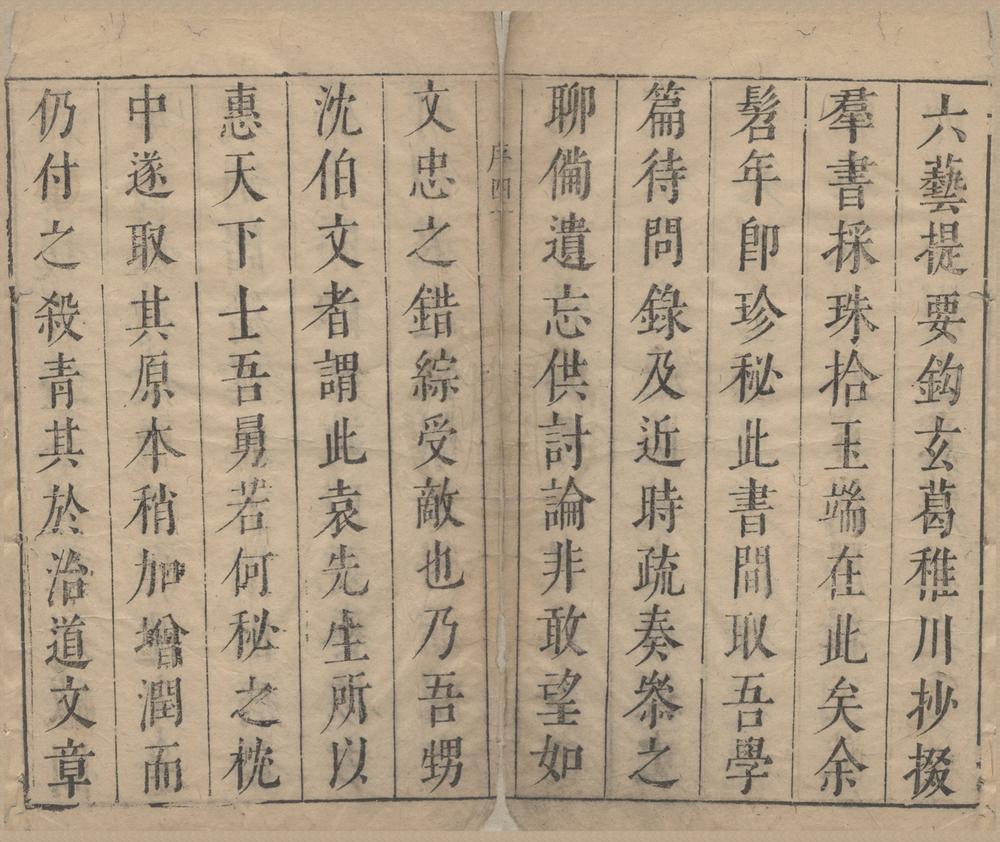 六藝提要鈎玄葛稚川抄掇
羣書採珠拾玉端在此矣余
髫年卽珍秘此書間取吾學
篇待問錄及近時疏奏叅之
聊俻遺忘供討論非敢望如
序四
文忠之錯綜受敵也乃吾甥
沈伯文者謂此袁先生所以
惠天下士吾舅若何秘之枕
中遂取其原本稍加增潤而
仍付之殺青其於治道文章